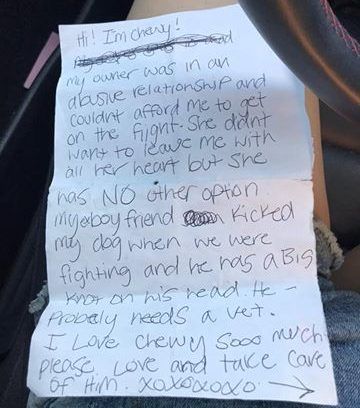 Hi! I'm chewy!
my owner was in an
abusive relationship and
couldnt afford me to get
on the flight. She didnt
want to leave me with
all her heart but she
has NO other option.
my boyfriend kicked
my dog when we were
fighting and he has a Big
knot on his head. He
Probely needs a vet.
I Love chewy Sooo much
please Love and take care
of Him. xoxoxoxo.